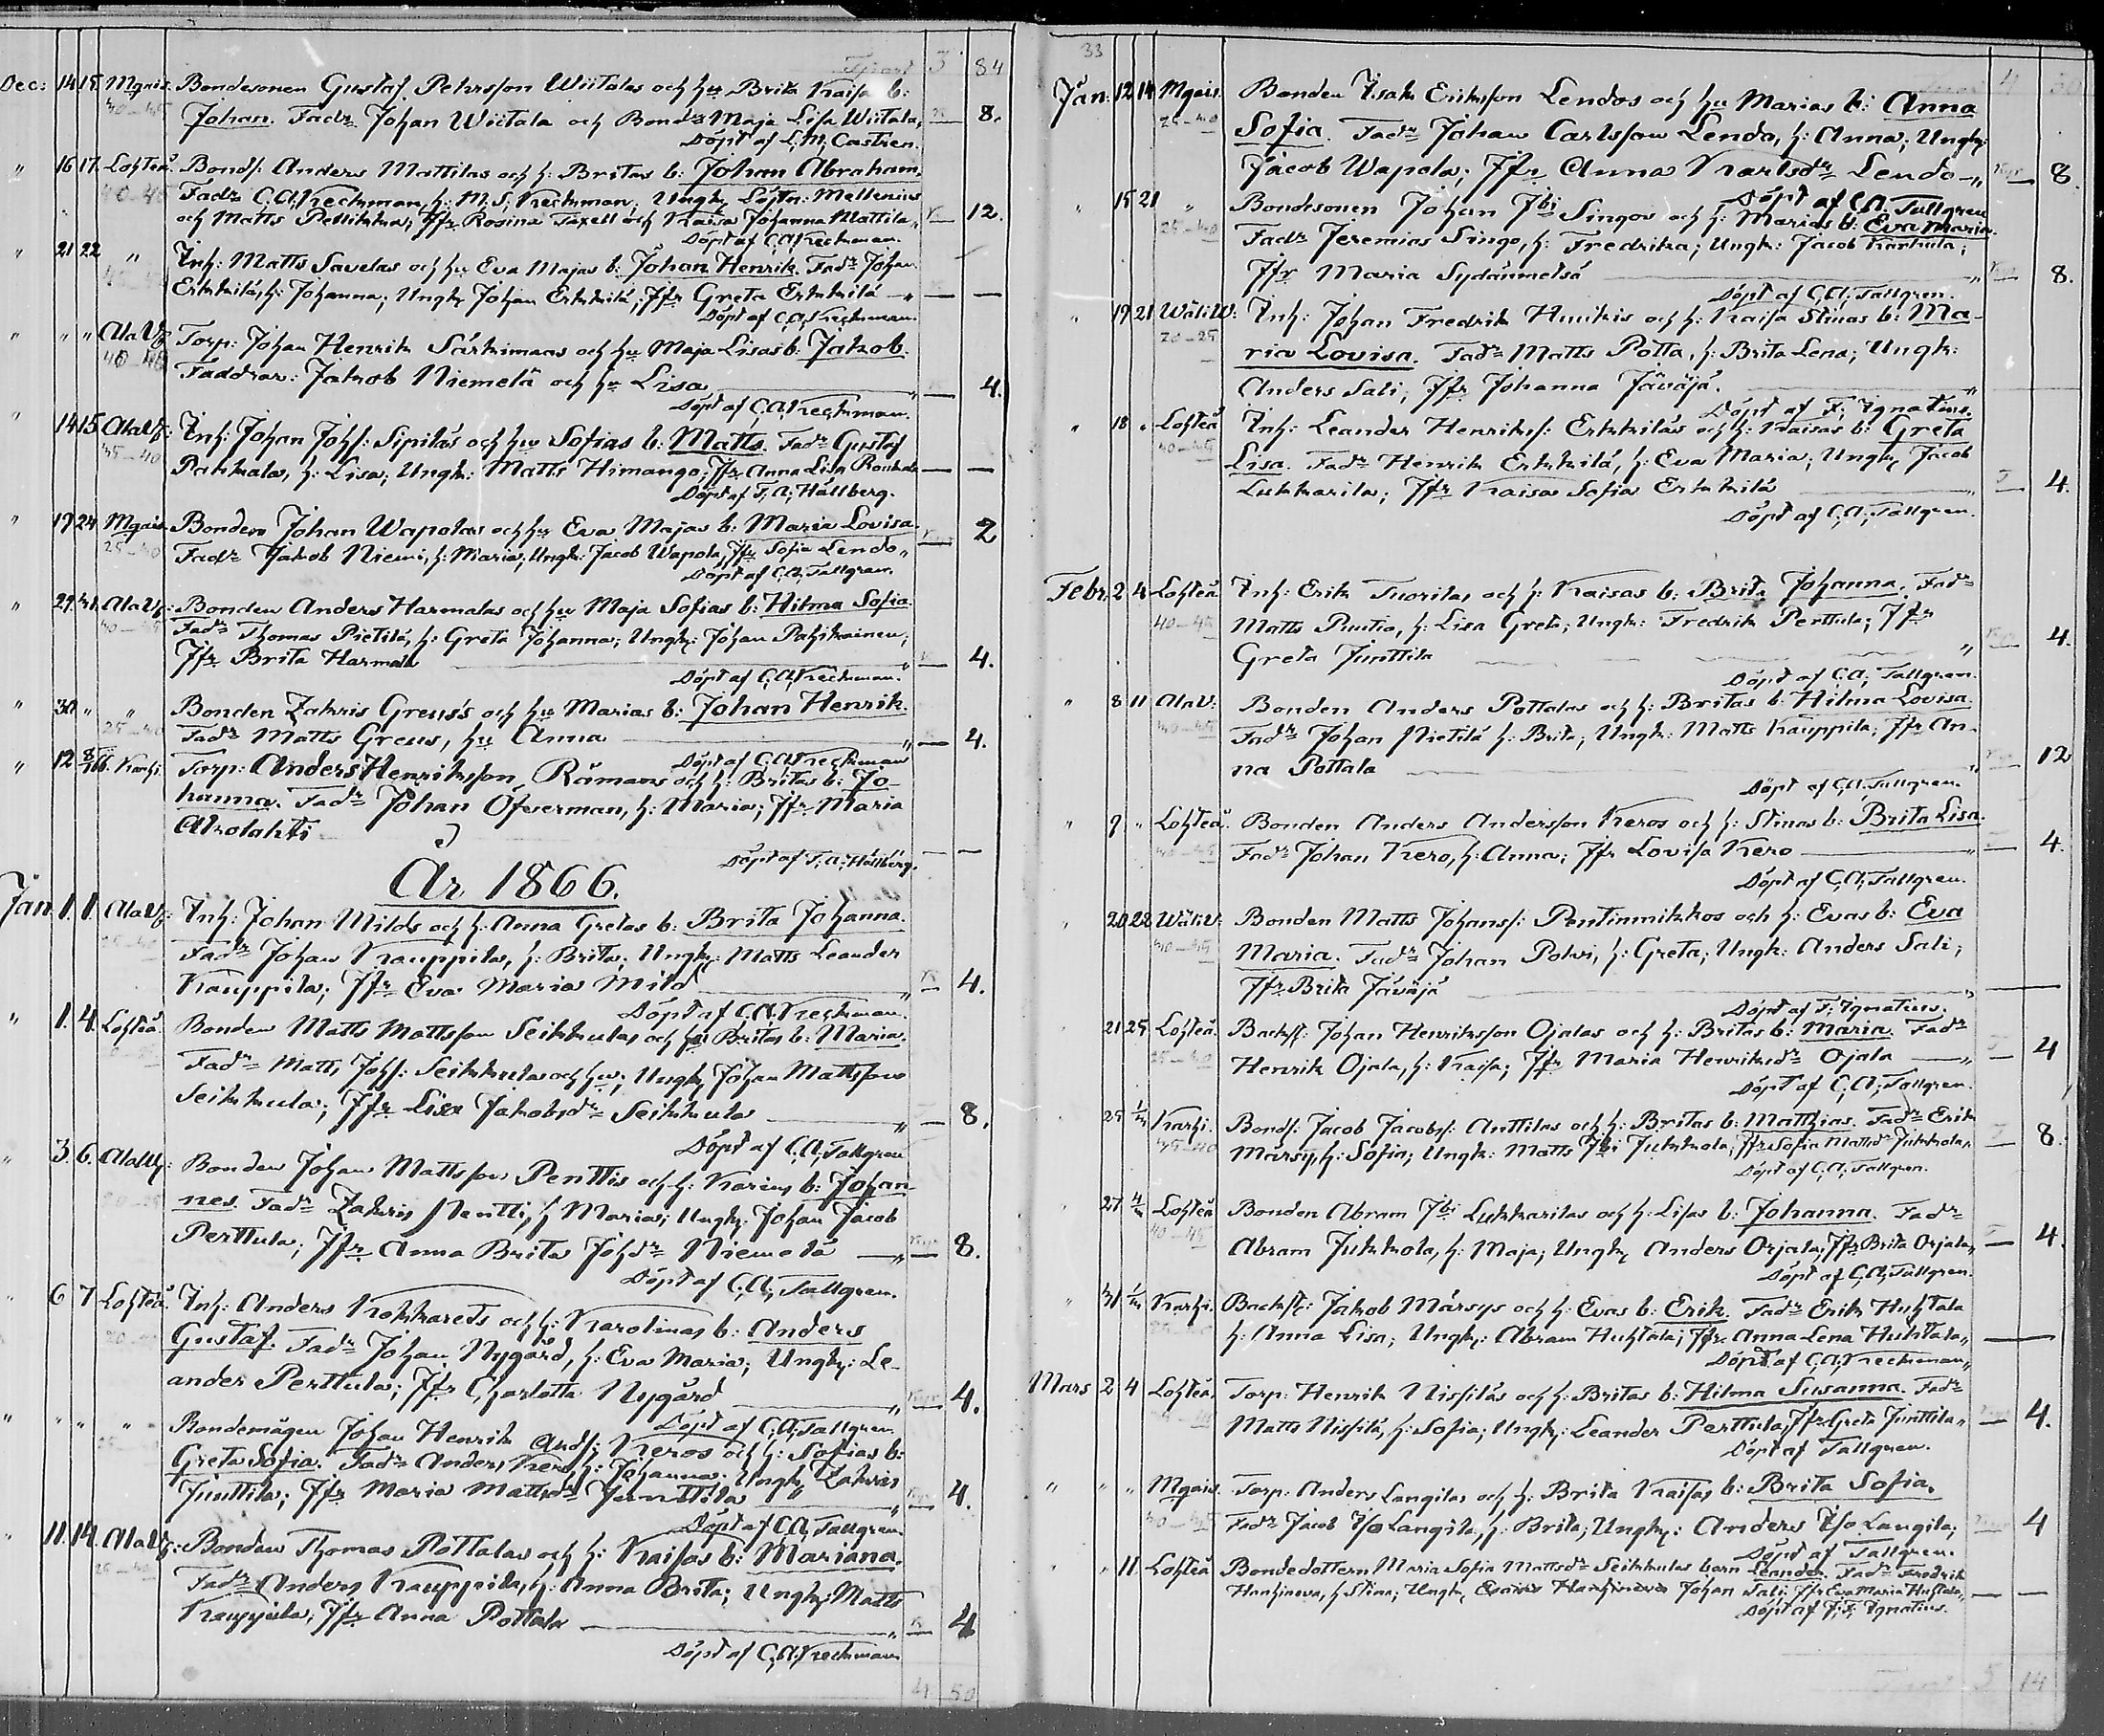 Transport 3 84
Dec: 14 15. Mgais. Bondesonen Gustaf Pehrsson Wiitalas och hu Brita Kaisa b:
40-45 Johan. Fadr Johan Wiitala och Bonds Maja Lisa Wiitala, 8.
Döpt af L. M. Castren.
" 16 17. Lohteå. Bonds: Anders Mattilas och h: Britas b: Johan Abraham.
40-45 Fadr C. A. Keckman, h: M. S. Keckman; Ungk, Löjtn: Mellenius
och Matts Pellikka; Jfr Rosina Taxell och Kaisa Johanna Mattila " 12.
Döpt af C. A. Keckman.
" 21 22 " Inh: Matts Savelas och hu Eva Majas b: Johan Henrik. Fadr Johan
Erkkilä, h: Johanna; Ungk Johan Erkkilä; Jfr Greta Erkkilä " — —
Döpt af C. A. Keckman.
" " " Ala V: Torp: Johan Henrik Särkimaas och hu Maja Lisas b: Jakob.
40-45 Faddrar: Jakob Niemelä och hu Lisa " — 4.
Döpt af C. A. Keckman.
" 14 15. Ala V: Inh: Johan Johs: Sipiläs och hu Sofias b: Matts. Fadr Gustaf
35-40 Pahkala, h: Lisa; Ungk: Matts Himango; Jfr Anna Lisa — —
Döpt af F. A. Hällberg.
" 17 24 Mgais. Bonden Johan Wapolas och hu Eva Majas b: Maria Lovisa.
25-40 Fadr Jakob Niemi, h: Maria; Ungk: Jacob Wapola, Jfr Sofia Lendo " 2
Döpt af C. A. Tallgren.
" 29. 31. Ala V: Bonden Anders Harmalas och hu Maja Sofias b: Hilma Sofia.
40-45 Fadr Thomas Pietilä, h: Greta Johanna; Ungk: Johan Pahikainen;
Jfr Brita Harmala " — 4.
Döpt af C. A. Keckman.
" 30 " " Bonden Zakris Greus's och hu Marias b: Johan Henrik.
25-40 Fadr Matts Greus, hu Anna " — 4.
Döpt af C. A. Keckman
" 12 8/ Karhi. Torp: Anders Henriksson Rämans och h: Britas b: Jo-
hanna. Fadr Johan Öfverman, h: Maria; Jfr Maria
Alvolahti — —
Döpt af F. A. Hällberg.
År 1866.
Jan 1. 1. Ala V: Inh: Johan Milds och h: Anna Gretas b: Brita Johanna.
Fadr Johan Kauppila, h: Brita; Ungk: Matts Leander
Kauppila; Jfr Eva Maria Mild " 4.
Döpt af C. A. Keckman.
" 1. 4. Lohteå. Bonden Matts Mattsson Seikkulas och hu Britas b: Maria.
Fadr Matts Johs: Seikkulas och hu; Ungk Johan Mattsson
Seikkula; Jfr Lisa Jakobsdr Seikkula " — 8.
Döpt af C. A. Tallgren
" 3. 6. Ala V: Bonden Johan Mattsson Penttis och h: Karins b: Johan-
nes. Fadr Zakris Pentti, h Maria; Ungk. Johan Jacob
Perttula; Jfr Anna Brita Johdr Niemelä " — 8.
Döpt af C. A. Tallgren.
" 6 7 Lohteå. Inh: Anders Kokkareds och h: Karolinas b: Anders
Gustaf. Fadr Johan Nygård, h: Eva Maria; Ungk: Le-
ander Perttula; Jfr Charlotta Nygård " — 4.
Döpt af C. A. Tallgren.
" " " " Bondemågen Johan Henrik Ands: Keros och h: Sofias b:
Greta Sofia. Fadr Anders Kero, h: Johanna. Ungk Zakris
Junttila; Jfr Maria Mattsdr Junttila " 4.
Döpt af C. A. Tallgren.
" 11. 14. Ala V: Bonden Thomas Pottalas och h: Kaisas b: Mariana.
25-40 Fadr Anders Kauppila, h: Anna Brita; Ungk Matts
Kauppila; Jfr Anna Pottala " — 4
Döpt af C. A. Keckman
4 50
33
4 50
Jan. 12 14 Mgais. Bonden Isak Eriksson Lendos och hu Marias b: Anna
25-40 Sofia. Fadr Johan Carlsson Lendo, h: Anna; Ungk:
Jacob Wapola; Jfr Anna Karlsdr Lendo " — 8.
Döpt af C. A. Tallgren
" 15 21 " Bondesonen Johan Jbi Singos och h: Marias b: Eva Maria.
25-40 Fadr Jeremias Singo, h: Fredrika; Ungk: Jacob Kankula;
Jfr Maria Sydänmetsä " — 8.
Döpt af C. A. Tallgren.
" 19 21 Wäli W: Inh: Johan Fredrik Huikis och h: Kaisa Stinas b: Ma-
20-25 ria Lovisa. Fadr Matts Potta, h: Brita Lena; Ungk:
Anders Sali; Jfr Johanna Jäväjä. "
Döpt af F. Ignatius.
" 18 " Lohteå Inh: Leander Henrikss: Erkkiläs och h: Kaisas b: Greta
40-45 Lisa. Fadr Henrik Erkkilä, h: Eva Maria; Ungk, Jacob
Lukkarila; Jfr Kaisa Sofia Erkkilä " — 4.
Döpt af C. A. Tallgren.
Febr. 2 4 Lohteå Inh: Erik Tuorilas och h: Kaisas b: Brita Johanna. Fadr
40-45 Matts Puutio, h: Lisa Greta; Ungk: Fredrik Perttula; Jfr
Greta Junttila " 4.
Döpt af C. A. Tallgren.
" 8 11 Ala V: Bonden Anders Pottalas och h: Britas b: Hilma Lovisa.
40-45 Fadr Johan Pietilä h: Brita; Ungk: Matts Kauppila; Jfr An-
na Pottala " 12
Döpt af C. A. Tallgren.
" 9 " Lohteå. Bonden Anders Andersson Keros och h: Stinas b: Brita Lisa.
Fadr Johan Kero, h: Anna; Jfr Lovisa Kero " — 4.
Döpt af C. A. Tallgren.
" 20 22 Wäli V: Bonden Matts Johanss: Pentinmikkos och h: Evas b: Eva
40-45 Maria. Fadr Johan Polvi, h: Greta; Ungk: Anders Sali;
Jfr Brita Jäväjä "
Döpt af F. Ignatius.
21 25 Lohteå. Backst: Johan Henriksson Ojalas och h: Britas b: Maria. Fadr
25-40 Henrik Ojala, h: Kaisa; Jfr Maria Henriksdr Ojala " — 4
Döpt af C. A. Tallgren.
25 Karhi. Bonds: Jacob Jacobs: Anttilas och h: Britas b: Matthias. Fadr Erik
35-40 Märsy, h: Sofia; Ungk: Matts Jbi Jukkola; Jfr Sofia Mattsdr Jukkola " 8.
Döpt af C. A. Tallgren.
" 27 4/ Lohteå Bonden Abram Jbi Lukkarilas och h: Lisas b: Johanna. Fadr
40-45 Abram Jukkola, h: Maja; Ungk Anders Orjala; Jfr Brita Orjala " — 4.
Döpt af C. A. Tallgren.
" 31 Karhi. Backst: Jakob Märsys och h: Evas b: Erik. Fadr Erik Huhtala
h: Anna Lisa; Ungk: Abram Huhtala; Jfr. Anna Lena Huhtala "
Döpt af C. A. Keckman "
Mars 2 4 Lohteå. Torp: Henrik Nissiläs och h: Britas b: Hilma Susanna. Fadr
Matts Nissilä, h: Sofia; Ungk: Leander Perttula, Jfr Greta Junttila " — 4.
Döpt af Tallgren.
" " " Mgais. Torp: Anders Langilas och h: Brita Kaisas b: Brita Sofia.
40-45 Fadr Jacob Langila, h: Brita; Ungk: Anders Langila; 4
Döpt af Tallgren.
" 11 Lohteå Bondedottern Maria Sofia Mattsdr Seikkulas barn Leander. Fadr Fredrik
Hanhineva, h Stina; Ungk, Johan Sali; Jfr Eva Maria Huhtala " — —
Döpt af F. F. Ignatius.
Transp. 5 14